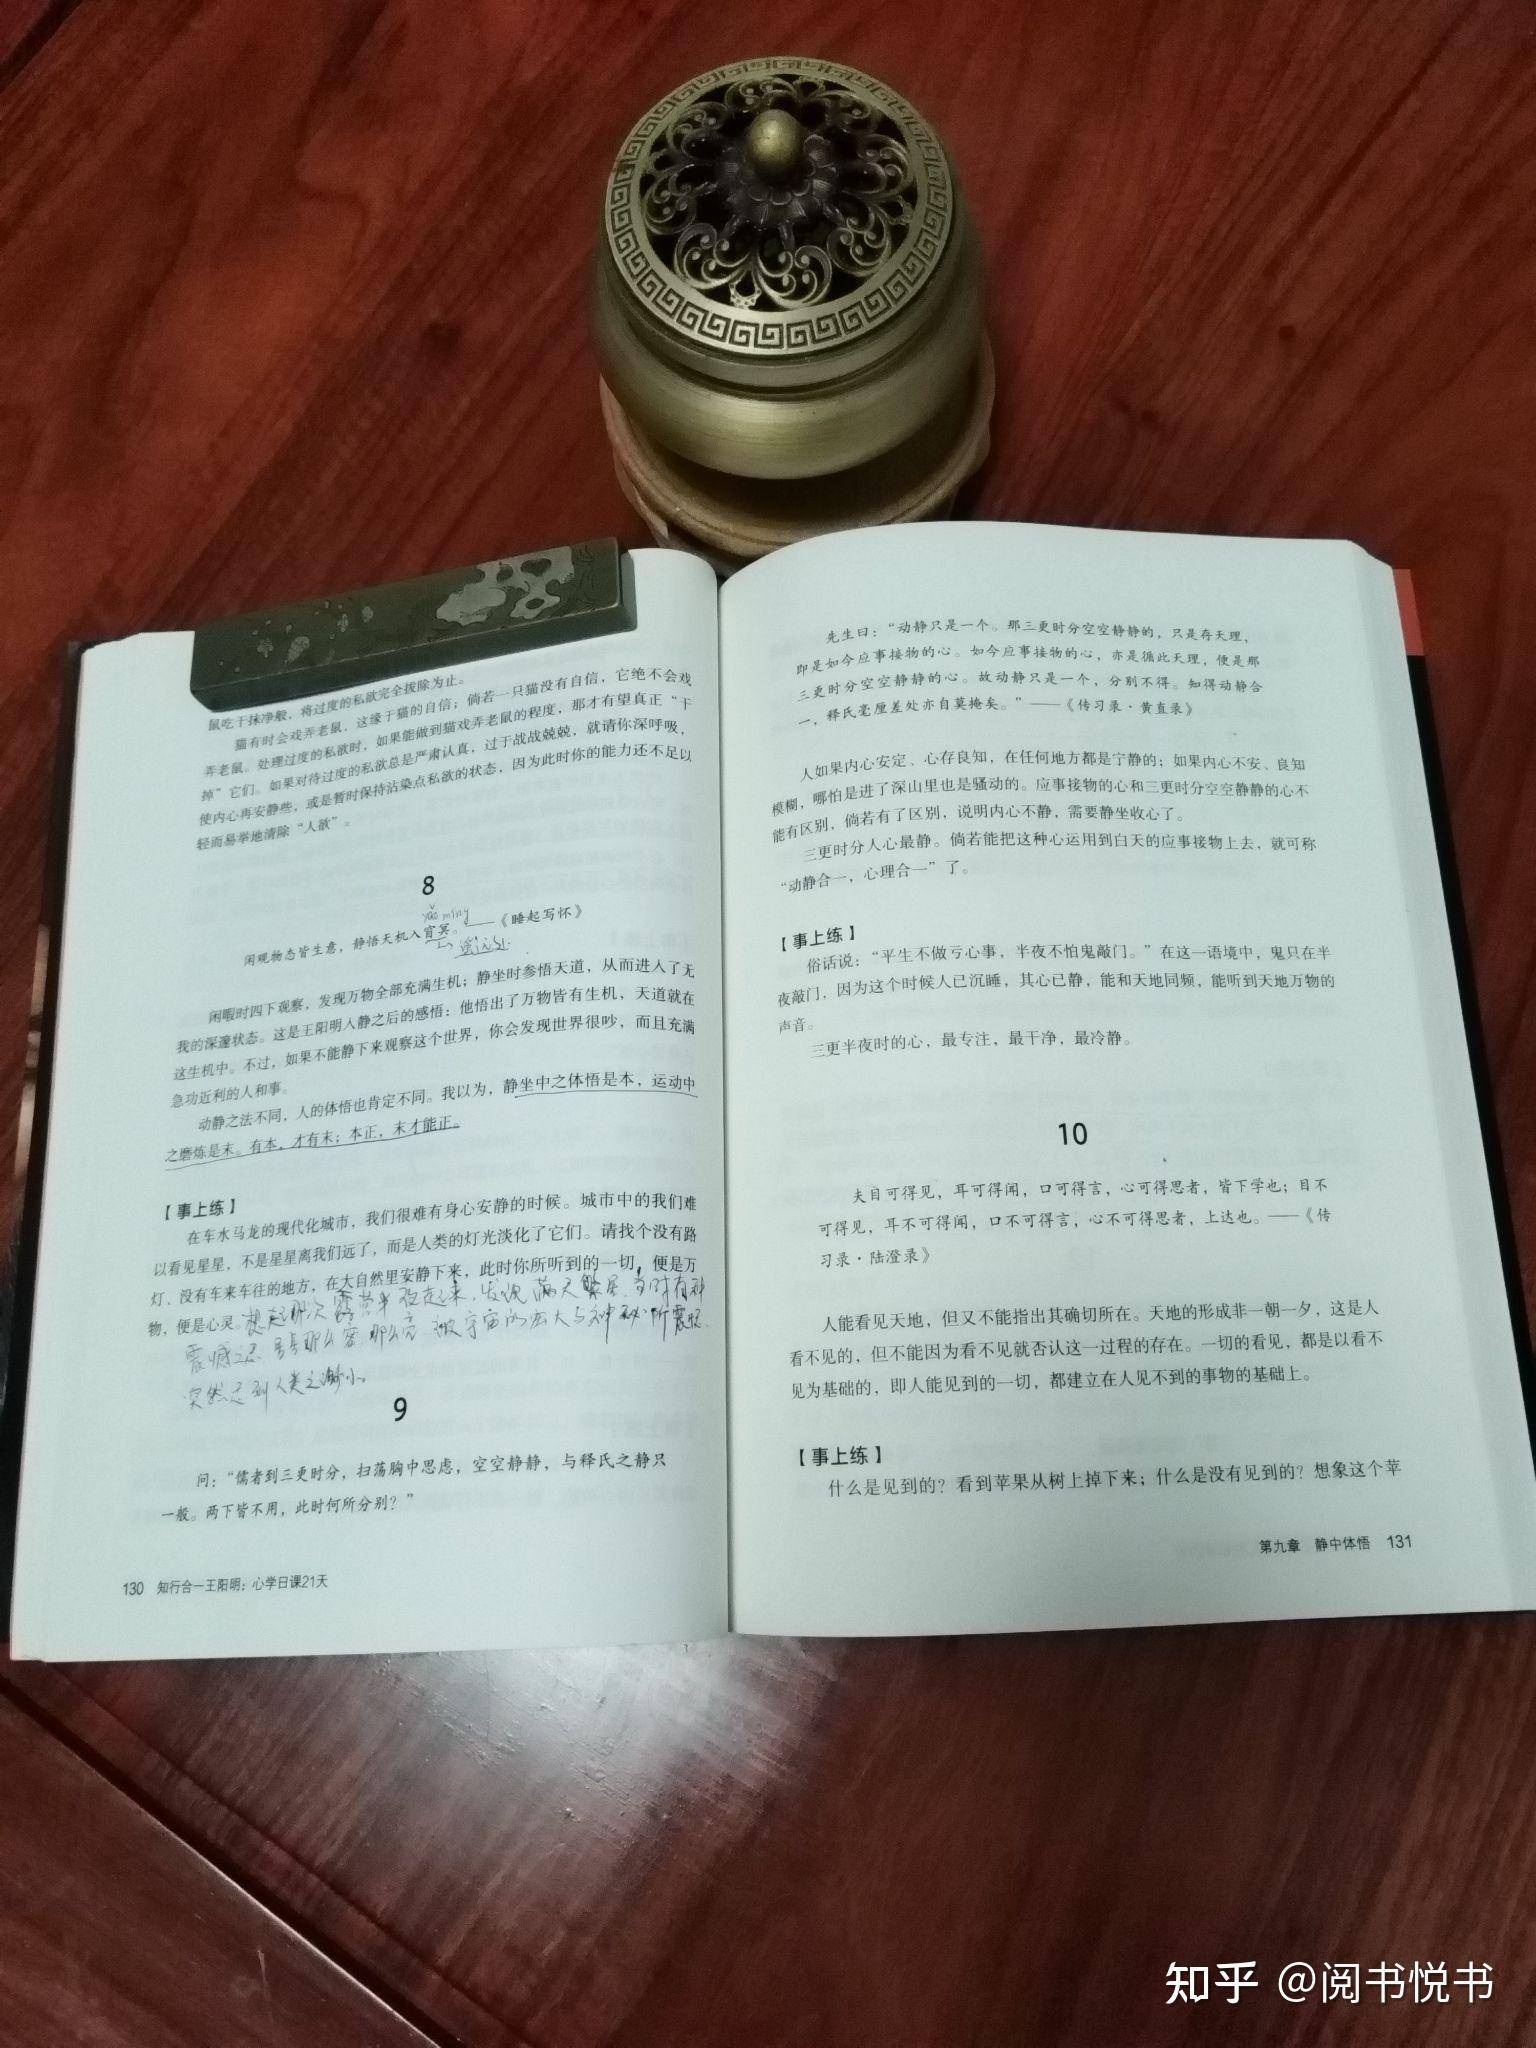 鼠吃干抹净般，将过度的私欲完全拔除为止。
猫有时会戏弄老鼠，这缘于猫的自信；倘若一只猫没有自信，它绝不会戏
弄老鼠。处理过度的私欲时，如果能做到猫戏弄老鼠的程度，那才有望真正“干
掉”它们。如果对待过度的私欲总是严肃认真，过于战战兢兢，就请你深呼吸，
使内心再安静些，或是暂时保持沾染点私欲的状态，因为此时你的能力还不足以
轻而易举地清除“人欲”。
8
yǎo míng
闲观物态皆生意，静悟天机入窅冥。——《睡起写怀》
遥远处
闲暇时四下观察，发现万物全部充满生机；静坐时参悟天道，从而进入了无
我的深邃状态。这是王阳明入静之后的感悟：他悟出了万物皆有生机，天道就在
这生机中。不过，如果不能静下来观察这个世界，你会发现世界很吵，而且充满
急功近利的人和事。
动静之法不同，人的体悟也肯定不同。我以为，静坐中之体悟是本，运动中
之磨炼是末。有本，才有末；本正，末才能正。
【事上练】
在车水马龙的现代化城市，我们很难有身心安静的时候。城市中的我们难
以看见星星，不是星星离我们远了，而是人类的灯光淡化了它们。请找个没有路
灯、没有车来车往的地方，在大自然里安静下来，此时你所听到的一切，便是万
物，便是心灵。
想起那次露营半夜起来，发现满天繁星，当时有种
震撼之感 星星那么密 那么亮 被宇宙的宏大与神秘所震撼
突然感到人类之渺小。
9
问：“儒者到三更时分，扫荡胸中思虑，空空静静，与释氏之静只
一般。两下皆不用，此时何所分别？”
130 知行合一王阳明：心学日课21天
先生曰：“动静只是一个。那三更时分空空静静的，只是存天理，
即是如今应事接物的心。如今应事接物的心，亦是循此天理，便是那
三更时分空空静静的心。故动静只是一个，分别不得。知得动静合
一，释氏毫厘差处亦自莫掩矣。”——《传习录·黄直录》
人如果内心安定、心存良知，在任何地方都是宁静的；如果内心不安、良知
模糊，哪怕是进了深山里也是骚动的。应事接物的心和三更时分空空静静的心不
能有区别，倘若有了区别，说明内心不静，需要静坐收心了。
三更时分人心最静。倘若能把这种心运用到白天的应事接物上去，就可称
“动静合一，心理合一”了。
【事上练】
俗话说：“平生不做亏心事，半夜不怕鬼敲门。”在这一语境中，鬼只在半
夜敲门，因为这个时候人已沉睡，其心已静，能和天地同频，能听到天地万物的
声音。
三更半夜时的心，最专注，最干净，最冷静。
10
夫目可得见，耳可得闻，口可得言，心可得思者，皆下学也；目不
可得见，耳不可得闻，口不可得言，心不可得思者，上达也。——《传
习录·陆澄录》
人能看见天地，但又不能指出其确切所在。天地的形成非一朝一夕，这是人
看不见的，但不能因为看不见就否认这一过程的存在。一切的看见，都是以看不
见为基础的，即人能见到的一切，都建立在人见不到的事物的基础上。
【事上练】
什么是见到的？看到苹果从树上掉下来；什么是没有见到的？想象这个苹
第九章 静中体悟 131
知乎 @阅书悦书